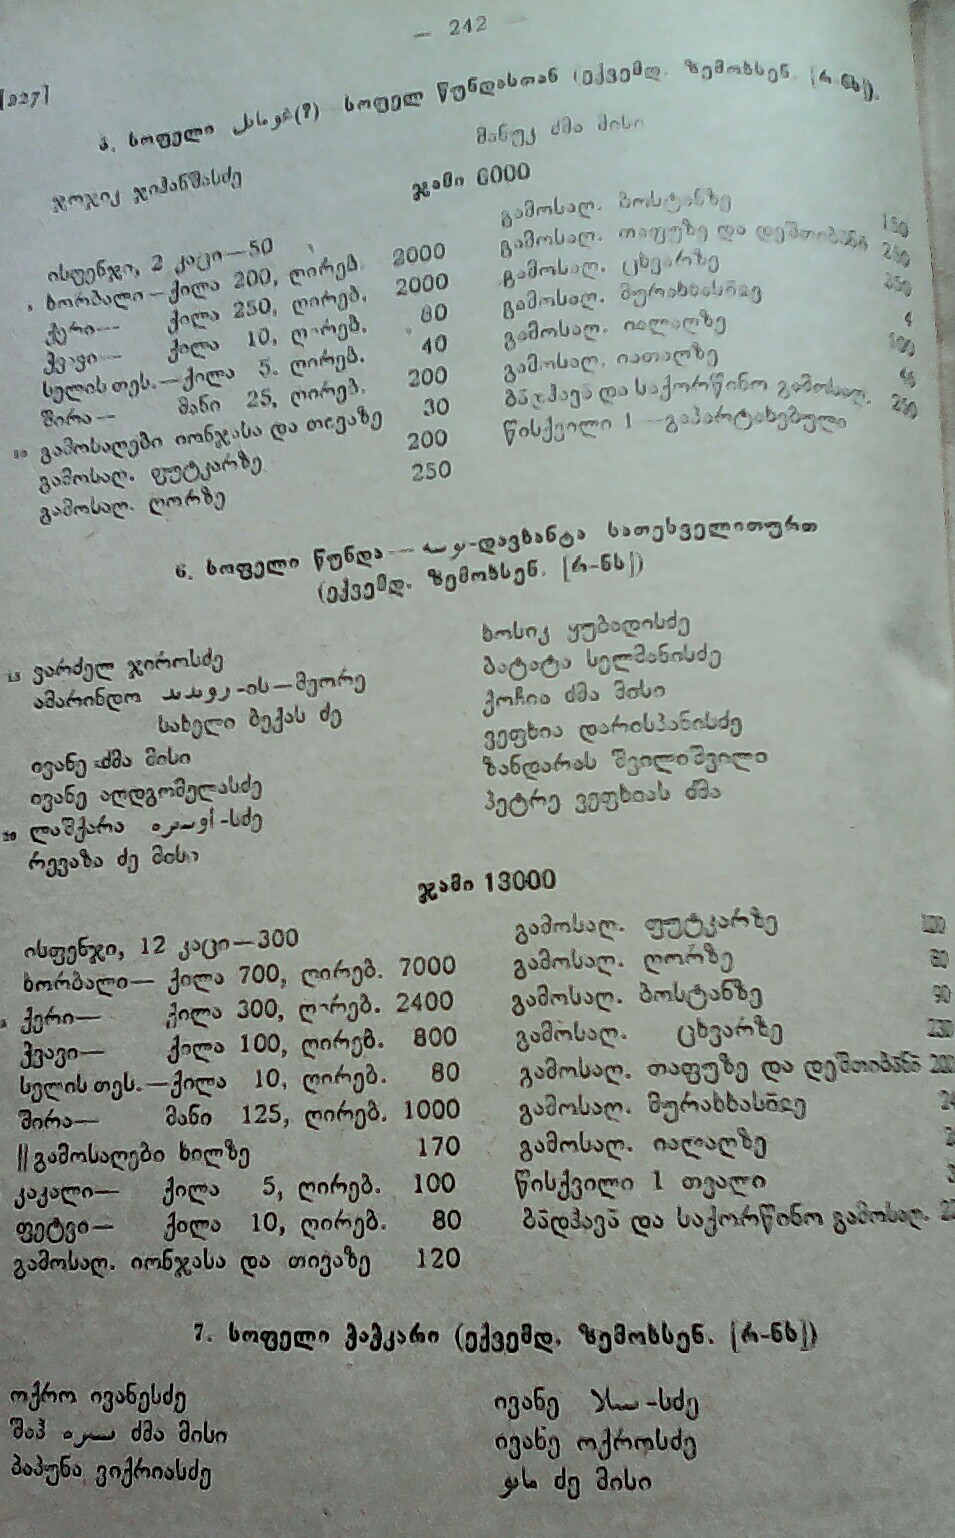 — 242 —
[227]
სოფელი (?) სოფელ წუნდასთან (ექვემდ. ზემოხსენ.
ჯოჯიკ ჯიჰანშასძე
მანუკ ძმა მისი
ჯამი 6000
ისფენჯი, 2 კაცი—50
ხორბალი—ქილა 200, ღირებ. 2000
ქერი— ქილა 250, ღირებ. 2000
ჭვავი— ქილა 10, ღირებ. 80
სელის თეს.—ქილა 5, ღირებ. 40
შირა— მანი 25, ღირებ. 200
გამოსაღები იონჯასა და თივაზე 30
გამოსაღ. ფუტკარზე 200
გამოსაღ. ღორზე 250
გამოსაღ. ბოსტანზე
გამოსაღ. თაფუზე და დეშთიბანზე
გამოსაღ. ცხვარზე
გამოსაღ.
გამოსაღ. იალაღზე
გამოსაღ. იათაღზე
ბადჰავა და საქორწინო გამოსაღ.
წისქვილი 1 —გაპარტახებული
6. სოფელი წუნდა— -დავხანტა სათესველითურთ
(ექვემდ. ზემოხსენ. [რ-ნს])
15 ვარძელ ჯიროსძე
ამარინდო -ის—მეორე
სახელი ბექას ძე
ივანე ძმა მისი
ივანე აღდგომელასძე
20 ლაშქარა -სძე
რევაზა ძე მისი
ხოსიკ ყუბადისძე
ბატატა სელმანისძე
ქოჩია ძმა მისი
ვეფხია დარისპანისძე
ზანდარას შვილიშვილი
პეტრე ვეფხიას ძმა
ჯამი 13000
ისფენჯი, 12 კაცი—300
ხორბალი— ქილა 700, ღირებ. 7000
ქერი— ქილა 300, ღირებ. 2400
ჭვავი— ქილა 100, ღირებ. 800
სელის თეს.—ქილა 10, ღირებ. 80
შირა— მანი 125, ღირებ. 1000
||გამოსაღები ხილზე 170
კაკალი— ქილა 5, ღირებ. 100
ფეტვი— ქილა 10, ღირებ. 80
გამოსაღ. იონჯასა და თივაზე 120
გამოსაღ. ფუტკარზე
გამოსაღ. ღორზე
გამოსაღ. ბოსტანზე
გამოსაღ. ცხვარზე
გამოსაღ. თაფუზე და
გამოსაღ.
გამოსაღ. იალაღზე
წისქვილი 1 თვალი
ბადჰავა და საქორწინო გამოსაღ.
7. სოფელი ჭაჭკარი (ექვემდ. ზემოხსენ. [რ-ნს])
ოქრო ივანესძე
შაჰ ძმა მისი
პაპუნა ვიქრიასძე
ივანე -სძე
ივანე ოქროსძე
ძე მისი